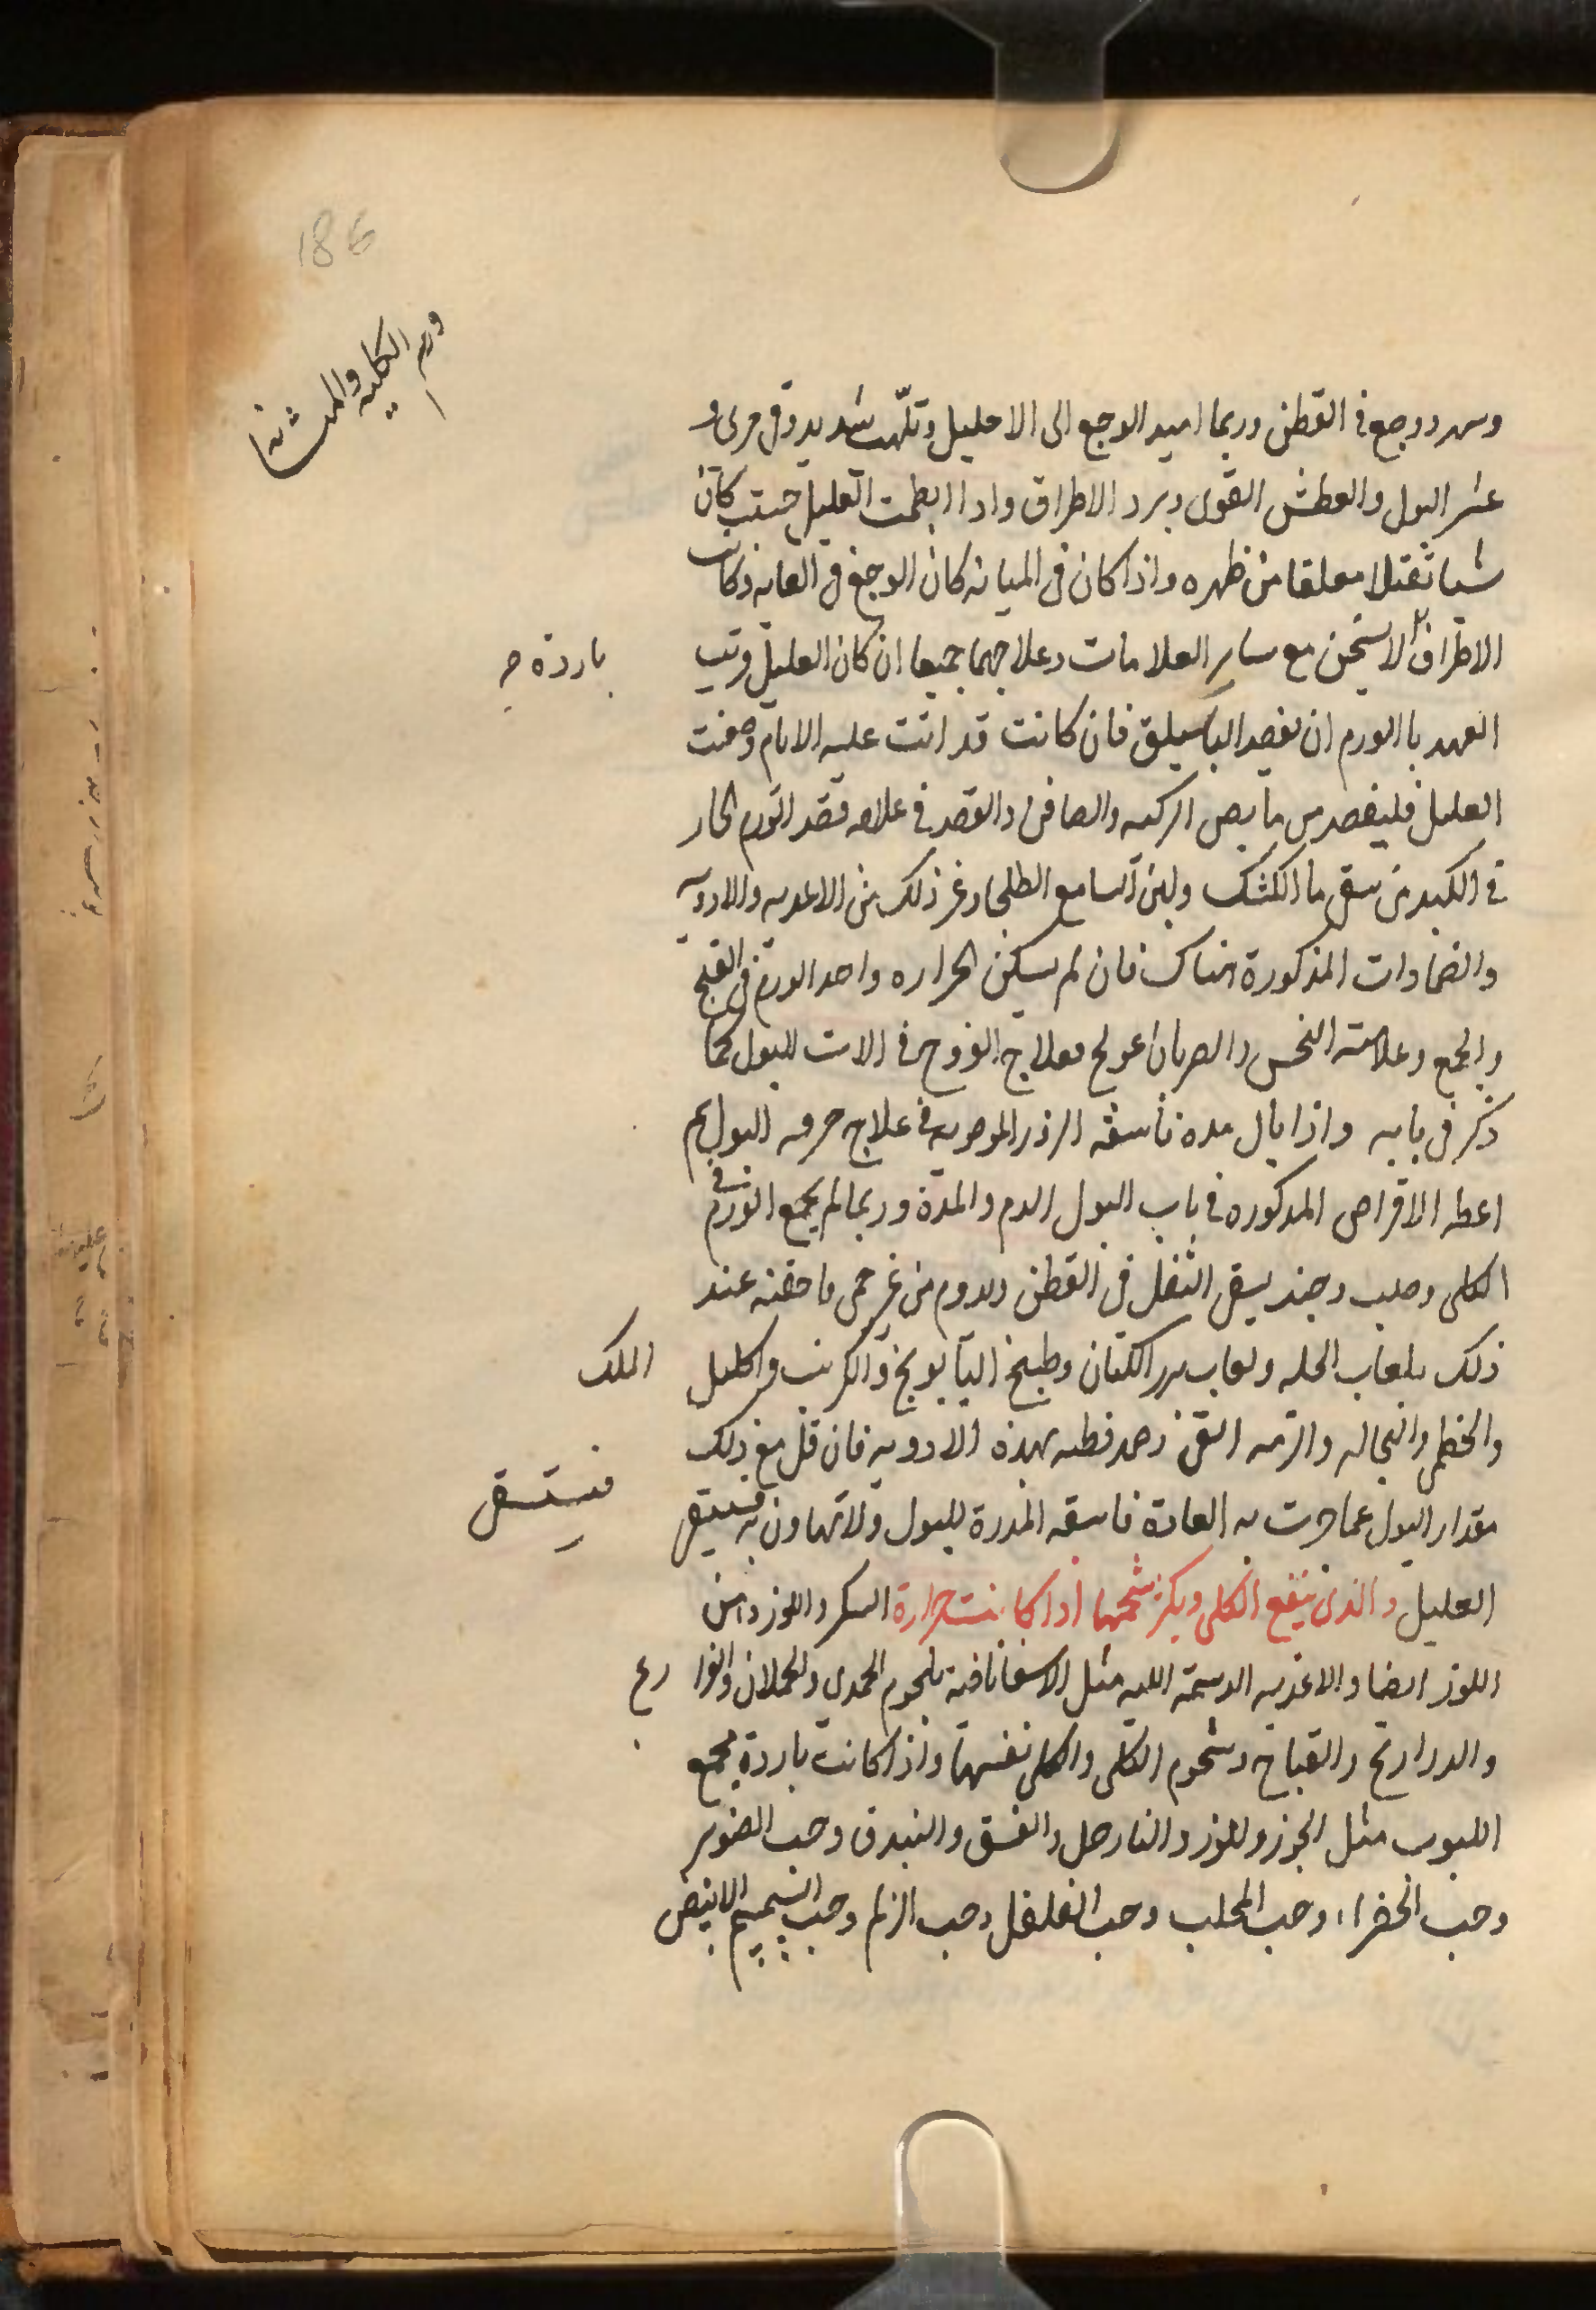 186
ورم الكليه والمثانه
وسهر ووجع فى القطن وربما امتد الوجع الى الاحليل وتلهب شديد وقى مرى و
عسر البول والعطش القوى وبرد الاطراف واذا انبطحت العليل حسب كان
شيا ثقيلا معلقا من ظهره واذا كان فى المثانه كان الوجع فى العانه وكانت
الاطراف لا يسخن مع ساير العلامات وعلاجهما جميعا ان كان العليل قريب
باردة
العهد با الورم ان يفصد الباسليق فان كانت قد اتت عليه الايام وضعفت
العليل فليفصد من مابض الركبه والصافن والقصد فى علاجه قصد الورم الحار
فى الكبد من سقى ما الكشك ولبن مع الطلى وغير ذلك من الاغذيه والادويه
والضمادات المذكورة هناك فان لم يسكن الحراره واخذ الورم فى القيح
والجمع وعلامته النخس والضربان عولج بعلاج القروح فى الات البول كما
ذكر فى بابه واذا بال مده فاسقه البزر الموصوفه فى علاج حرقه البول ثم
اعطه الاقراص المذكوره فى باب البول الدم والمدة وربما لم يجمع الورم فى
الكلى وصلب وحينئذ يبقى الثقل فى القطن ويدوم من غير حمى فاحقنه عند
ذلك بلعاب الحلبه ولعاب بزر الكتان وطبيخ البابونج والكرنب واكليل الملك
والخطمى والنخاله والتين وضمد قطنه بهذه الادويه فان قل مع ذلك
مقدار البول عما جرت به العادة فاسقه المدرة للبول ولا تهاون به فيستسقى
فيستسقى
العليل والذى ينفع الكلى ويكثر شحمها اذا كانت حرارة السكر واللوز ودهن
اللوز ايضا والاغذيه الدسمة اللينه مثل الاسفاناخيه بلحوم الجدى والحملان والفراريج
والدراريج والقباج وشحوم الكلى والكلى نفسها واذا كانت باردة بجميع
اللبوب مثل الجوز واللوز والنارجيل والفستق والبندق وحب الصنوبر
وحب الخضراء وحب المحلب وحب الفلفل وحب الزلم وحب السمسم الابيض